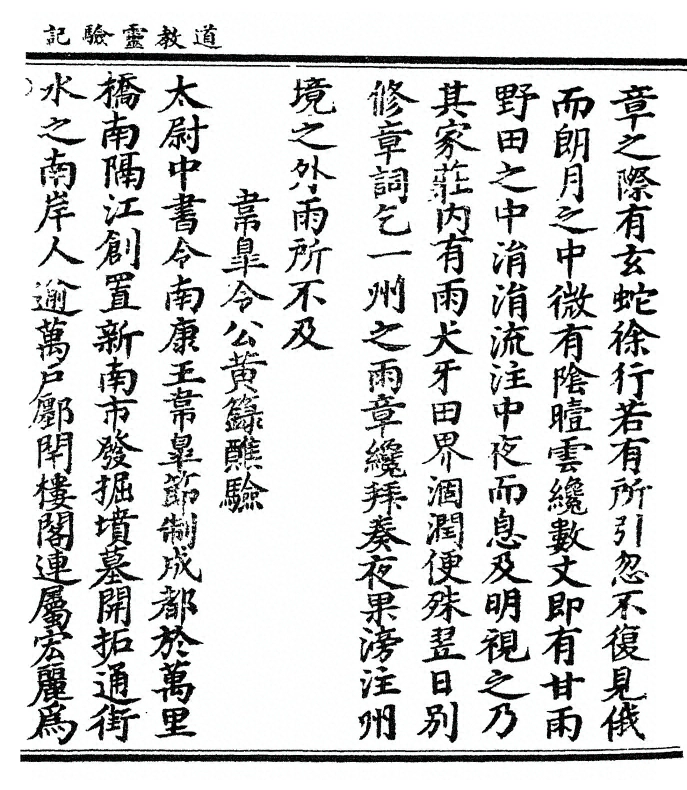 道教靈驗記
章之際有玄蛇徐行若有所引忽不復見俄
而朗月之中微有陰曀雲纔數丈即有甘雨
野田之中涓涓流注中夜而息及明視之乃
其家莊內有雨犬牙田界涸潤便殊翌日別
修章詞乞一州之雨章纔拜奏夜果滂注州
境之外雨所不及
韋皐令公黃籙醮驗
太尉中書令南康王韋皐節制成都於萬里
橋南隔江創置新南市發掘墳墓開拓通街
水之南岸人逾萬戶鄽閈樓閣連屬宏麗為